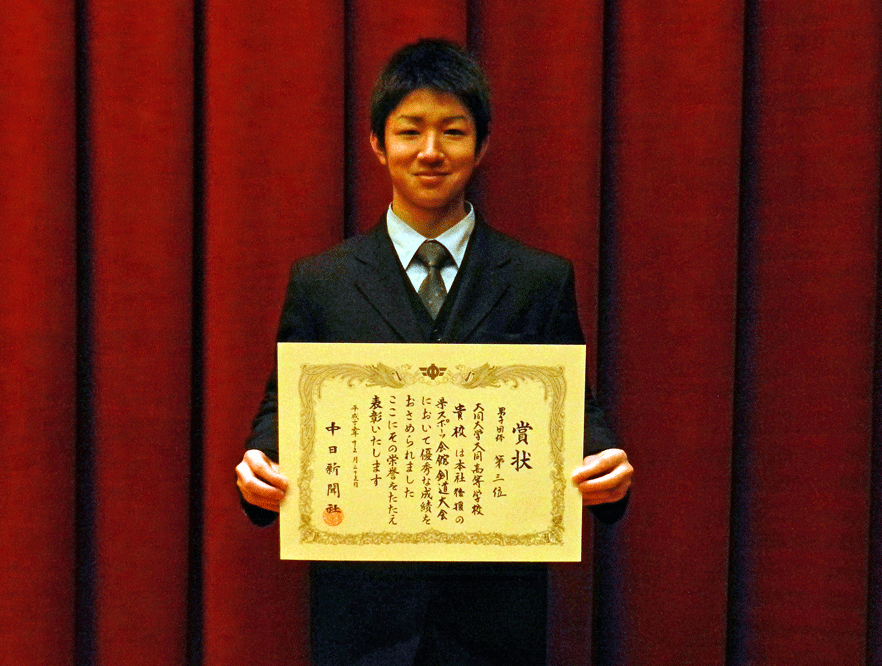 賞状
男子団体 第三位
大同大学大同高等学校
貴校は本社後援の
県スポーツ会館剣道大会
において優秀な成績を
おさめられました
ここにその栄誉をたたえ
表彰いたします
平成 年 月 日
中日新聞社